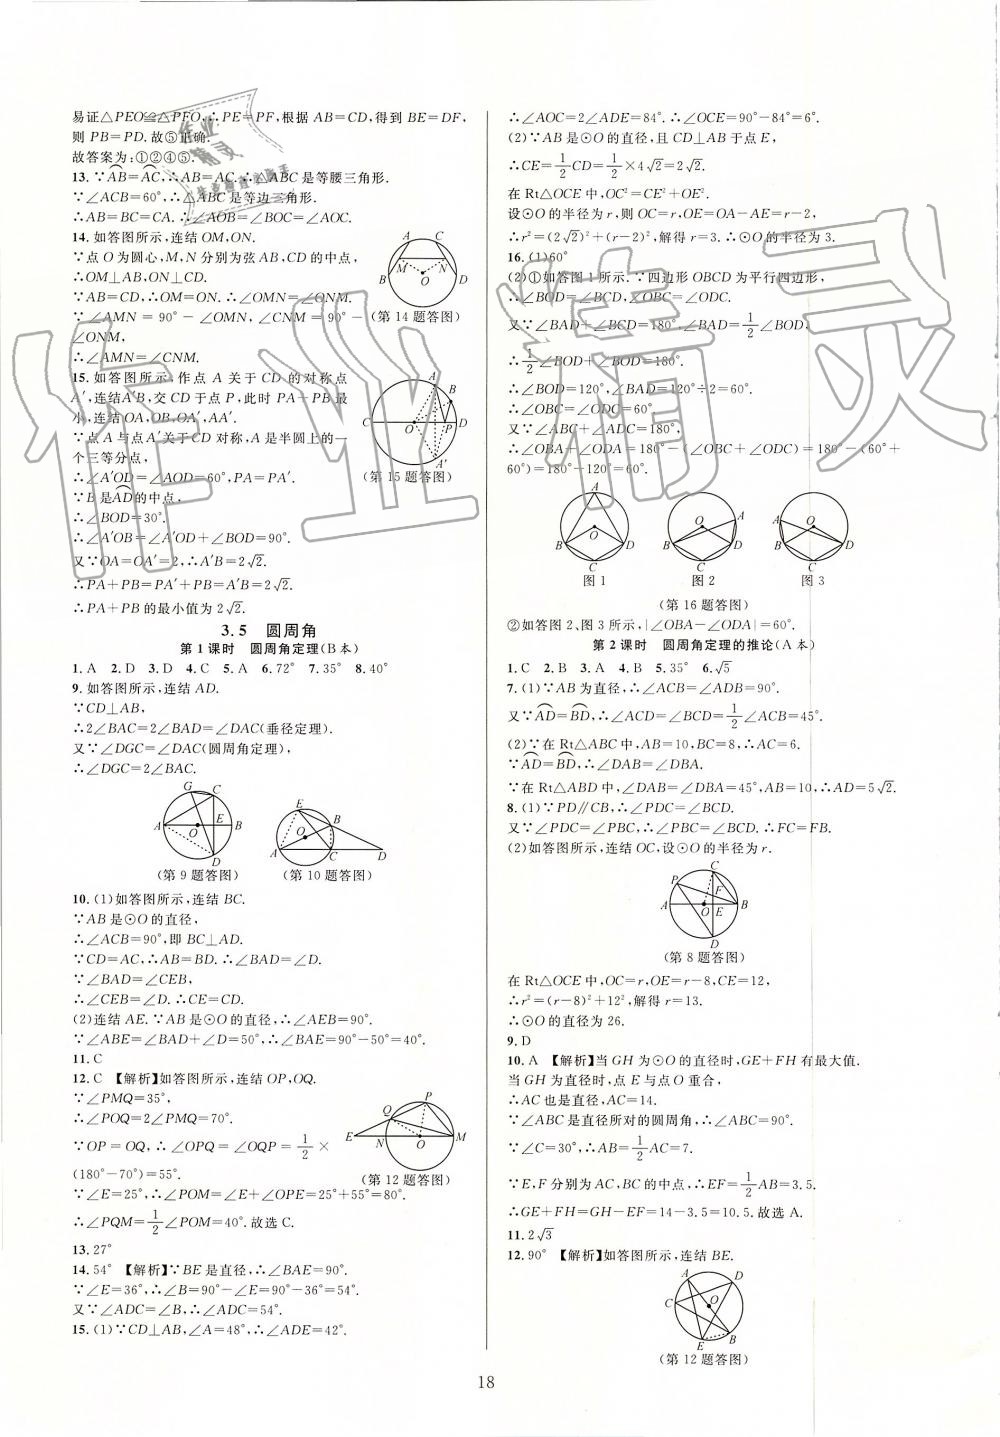 易证△PEO≌△PFO,∴PE=PF,根据AB=CD,得到BE=DF,
则PB=PD.故⑤正确.
故答案为:①②④⑤.
13.∵AB=AC,∴AB=AC.∴△ABC是等腰三角形.
∵∠ACB=60°,∴△ABC是等边三角形.
∴AB=BC=CA.∴∠AOB=∠BOC=∠AOC.
14.如答图所示,连结OM,ON.
∵点O为圆心,M,N分别为弦AB,CD的中点,
∴OM⊥AB,ON⊥CD.
∵AB=CD,∴OM=ON.∴∠OMN=∠ONM.
∵∠AMN=90°-∠OMN,∠CNM=90°-
∠ONM,
∴∠AMN=∠CNM.
(第14题答图)
15.如答图所示,作点A关于CD的对称点
A′,连结A′B,交CD于点P,此时PA+PB最
小,连结OA,OB,OA′,AA′.
∵点A与点A′关于CD对称,A是半圆上的一
个三等分点,
∴∠A′OD=∠AOD=60°,PA=PA′.
∵B是AD的中点,
∴∠BOD=30°.
∴∠A′OB=∠A′OD+∠BOD=90°.
又∵OA=OA′=2,∴A′B=2√2.
∴PA+PB=PA′+PB=A′B=2√2.
∴PA+PB的最小值为2√2.
(第15题答图)
3.5 圆周角
第1课时 圆周角定理(B本)
1.A 2.D 3.D 4.C 5.A 6.72° 7.35° 8.40°
9.如答图所示,连结AD.
∵CD⊥AB,
∴2∠BAC=2∠BAD=∠DAC(垂径定理).
又∵∠DGC=∠DAC(圆周角定理),
∴∠DGC=2∠BAC.
(第9题答图) (第10题答图)
10.(1)如答图所示,连结BC.
∵AB是⊙O的直径,
∴∠ACB=90°,即BC⊥AD.
∵CD=AC,∴AB=BD.∴∠BAD=∠D.
∵∠BAD=∠CEB,
∴∠CEB=∠D.∴CE=CD.
(2)连结AE.∵AB是⊙O的直径,∴∠AEB=90°.
∵∠ABE=∠BAD+∠D=50°,∴∠BAE=90°-50°=40°.
11.C
12.C 【解析】如答图所示,连结OP,OQ.
∵∠PMQ=35°,
∴∠POQ=2∠PMQ=70°.
∵OP=OQ,∴∠OPQ=∠OQP=1/2×
(180°-70°)=55°.
∵∠E=25°,∴∠POM=∠E+∠OPE=25°+55°=80°.
∴∠PQM=1/2∠POM=40°.故选C.
(第12题答图)
13.27°
14.54° 【解析】∵BE是直径,∴∠BAE=90°.
∵∠E=36°,∴∠B=90°-∠E=90°-36°=54°.
又∵∠ADC=∠B,∴∠ADC=54°.
15.(1)∵CD⊥AB,∠A=48°,∴∠ADE=42°.
∴∠AOC=2∠ADE=84°.∴∠OCE=90°-84°=6°.
(2)∵AB是⊙O的直径,且CD⊥AB于点E,
∴CE=1/2CD=1/2×4√2=2√2.
在Rt△OCE中,OC²=CE²+OE².
设⊙O的半径为r,则OC=r,OE=OA-AE=r-2,
∴r²=(2√2)²+(r-2)²,解得r=3.∴⊙O的半径为3.
16.(1)60°
(2)①如答图1所示.∵四边形OBCD为平行四边形,
∴∠BOD=∠BCD,∠OBC=∠ODC.
又∵∠BAD+∠BCD=180°,∠BAD=1/2∠BOD,
∴1/2∠BOD+∠BOD=180°.
∴∠BOD=120°,∠BAD=120°÷2=60°.
∴∠OBC=∠ODC=60°.
又∵∠ABC+∠ADC=180°,
∴∠OBA+∠ODA=180°-(∠OBC+∠ODC)=180°-(60°+
60°)=180°-120°=60°.
图1 图2 图3
(第16题答图)
②如答图2、图3所示,|∠OBA-∠ODA|=60°.
第2课时 圆周角定理的推论(A本)
1.C 2.B 3.A 4.B 5.35° 6.√5
7.(1)∵AB为直径,∴∠ACB=∠ADB=90°.
又∵AD=BD,∴∠ACD=∠BCD=1/2∠ACB=45°.
(2)∵在Rt△ABC中,AB=10,BC=8,∴AC=6.
∵AD=BD,∴∠DAB=∠DBA.
∵在Rt△ABD中,∠DAB=∠DBA=45°,AB=10,∴AD=5√2.
8.(1)∵PD∥CB,∴∠PDC=∠BCD.
又∵∠PDC=∠PBC,∴∠PBC=∠BCD.∴FC=FB.
(2)如答图所示,连结OC,设⊙O的半径为r.
(第8题答图)
在Rt△OCE中,OC=r,OE=r-8,CE=12,
∴r²=(r-8)²+12²,解得r=13.
∴⊙O的直径为26.
9.D
10.A 【解析】当GH为⊙O的直径时,GE+FH有最大值.
当GH为直径时,点E与点O重合,
∴AC也是直径,AC=14.
∵∠ABC是直径所对的圆周角,∴∠ABC=90°.
∵∠C=30°,∴AB=1/2AC=7.
∵E,F分别为AC,BC的中点,∴EF=1/2AB=3.5.
∴GE+FH=GH-EF=14-3.5=10.5.故选A.
11.2√3
12.90° 【解析】如答图所示,连结BE.
(第12题答图)
18